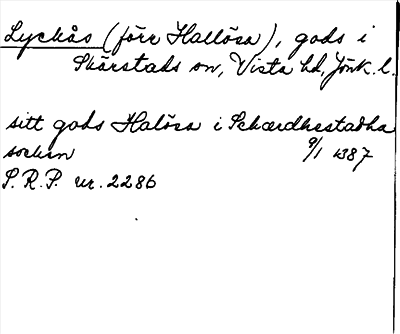 Lyckås (förr Hallösa), gods i
Skärstads sn, Vista hd, Jönk. l.
sitt gods Halösa i Schærdhestadha
sochnn 9/1 1387
S. R. P. nr. 2286